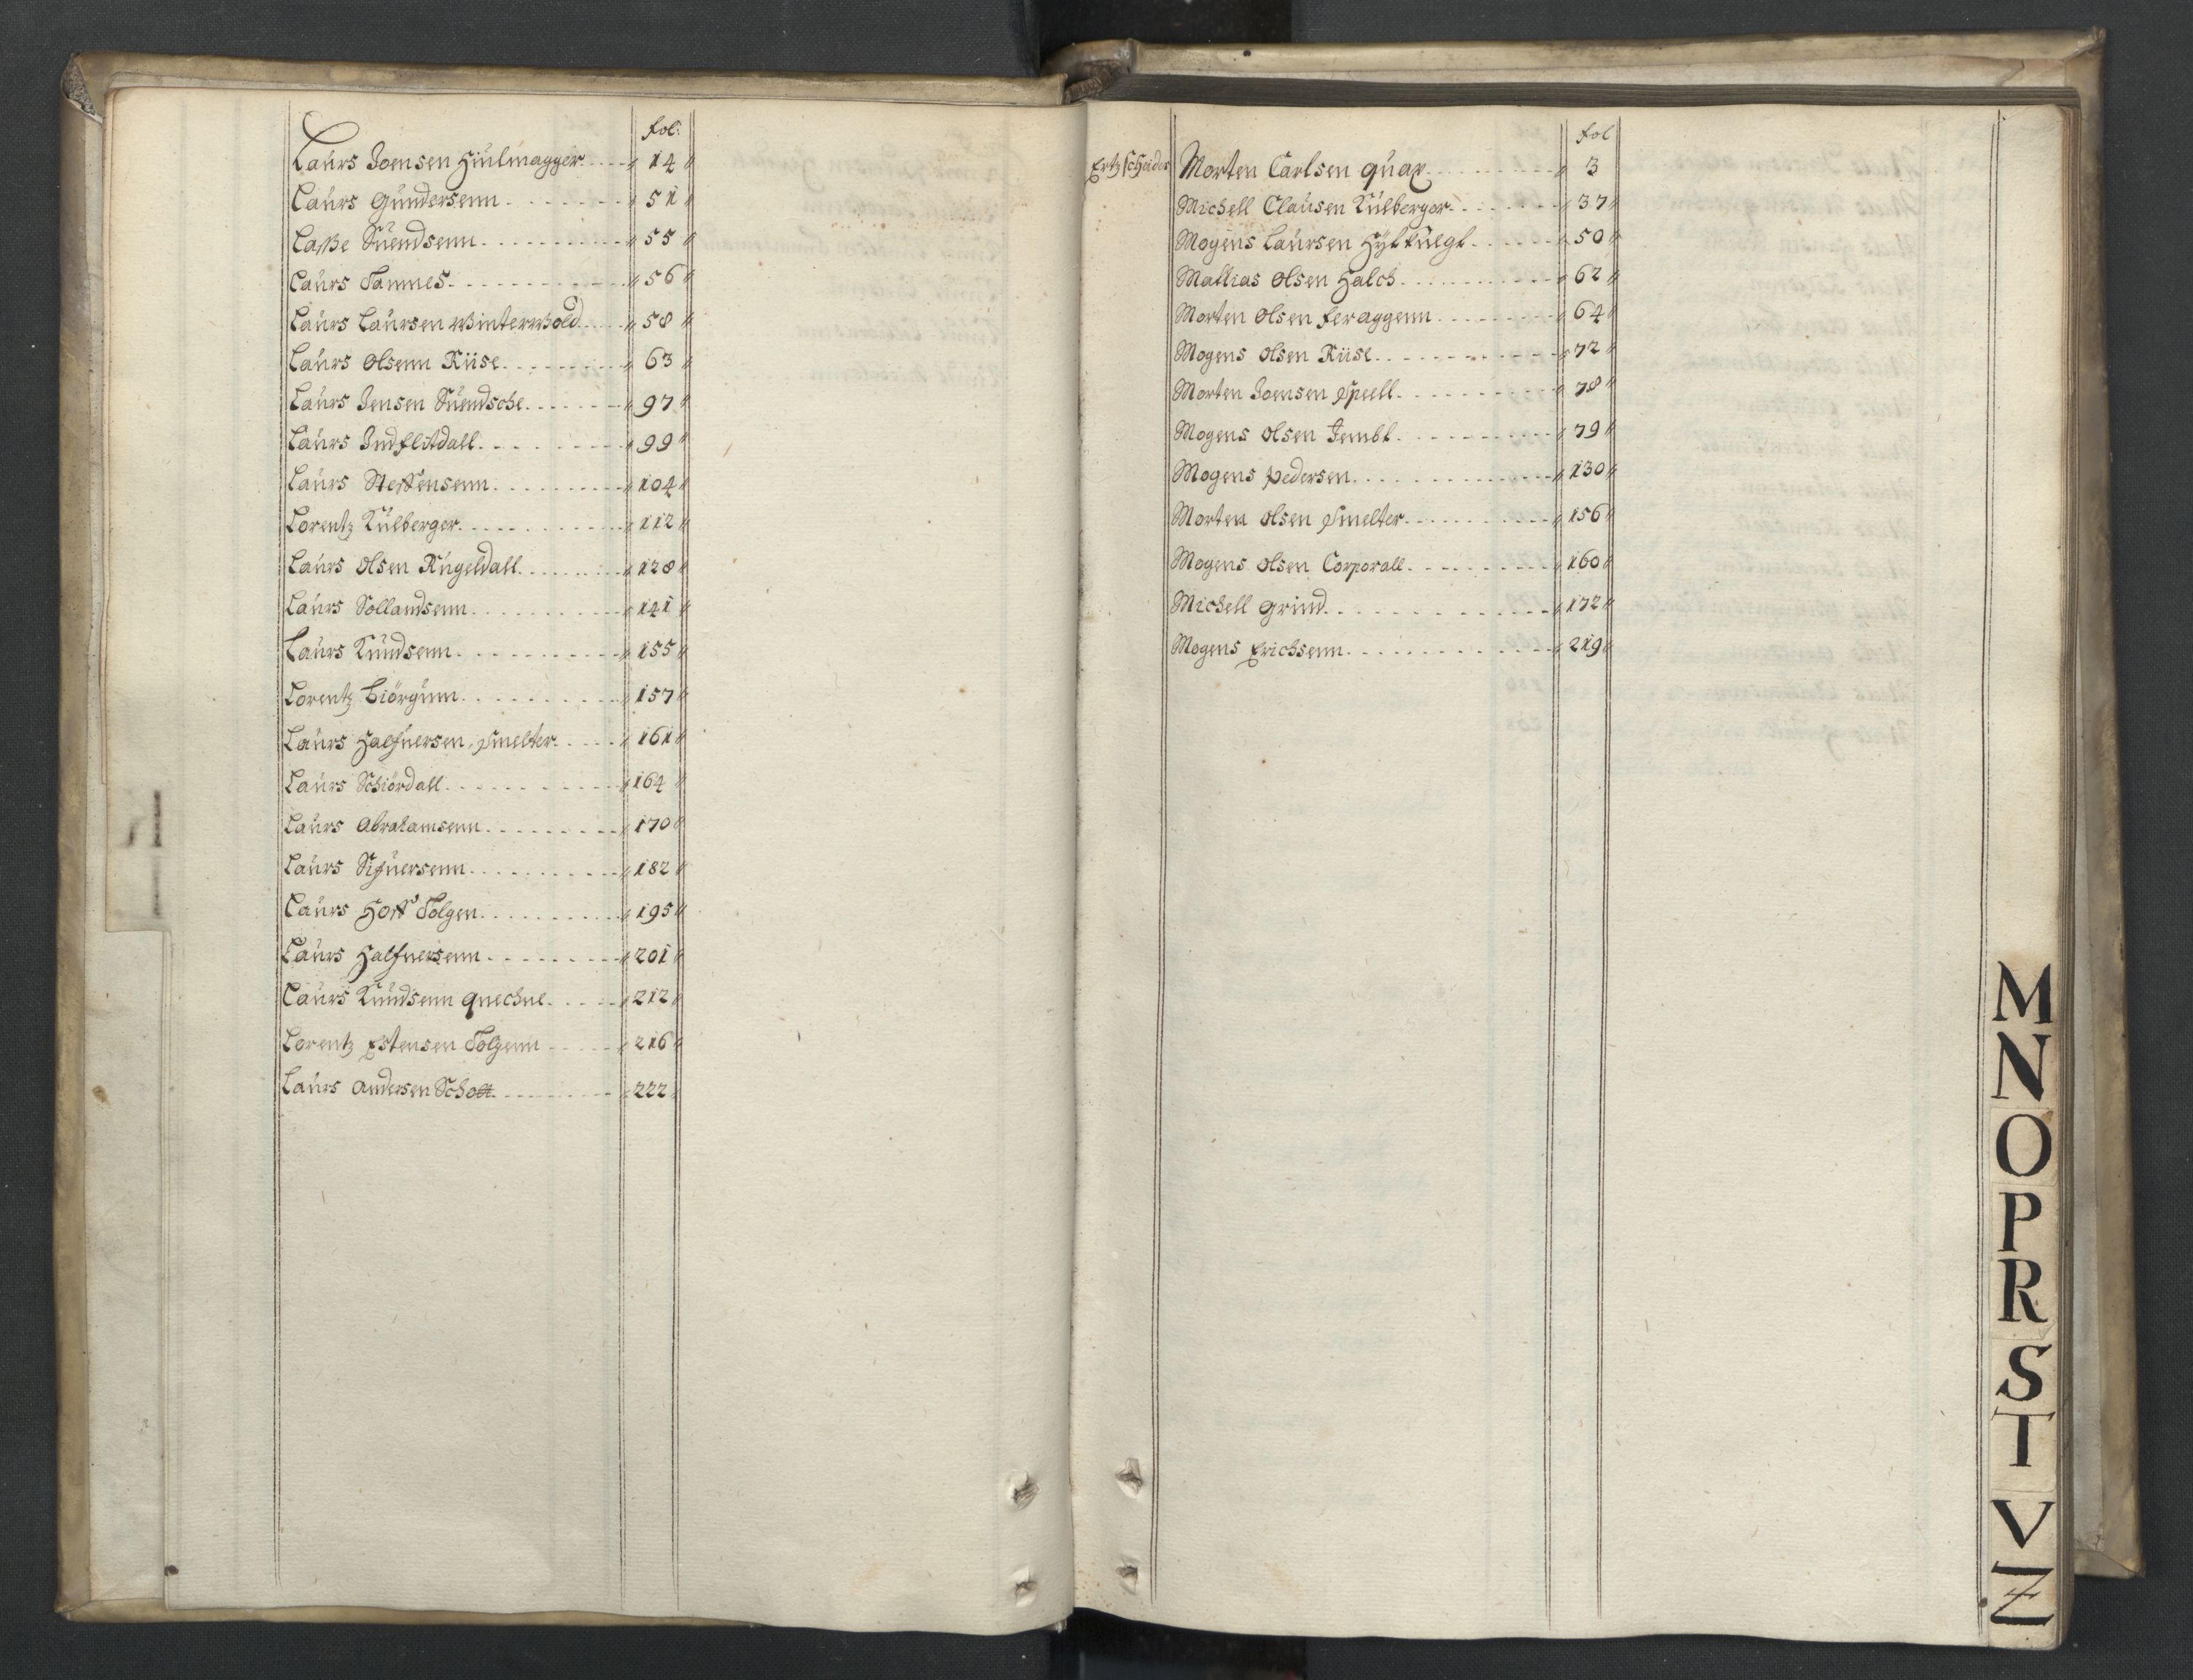 fol:
Laurs Joensen Hiulmagger 14
Laurs Gundersenn 51
Laße Suendsenn 55
Laurs Tannes 56
Laurs Laursen Winterwold 58
Laurs Olsenn Riise 63
Laurs Jensen Suendsche 97
Laurs Indflitdall 99
Laurs Stertensenn 104
Lorentz Kulberger 112
Laurs Olsen Rugeldall 128
Laurs Sollandsenn 141
Laurs Knudsenn 155
Lorentz Biörgunn 157
Laurs Halfuersen Smelter 161
Laurs Schiördall 164
Laurs Abrahamsenn 170
Laurs Sifuersenn 182
Laurs Hort Tolgen 195
Laurs Halfuersenn 201
Laurs Knudsenn Quechne 212
Lorentz Estensen Tolgenn 216
Laurs Andersen Schott 222
fol
Ertzscheider Morten Carlsen Quar 3
Michell Clausen Kulberger 37
Mogens Laursen 50
Mattias Olsen Halch 62
Morten Olsen Feraggenn 64
Mogens Olsen Riise 72
Morten Joensen Speell 78
Mogens Olsen Jembt 79
Mogens Pedersen 130
Morten Olsen Smelter 156
Mogens Olsen Corporall 160
Michell Grind 172
Mogens Erichsenn 219
M
N
O
P
R
S
T
V
Z